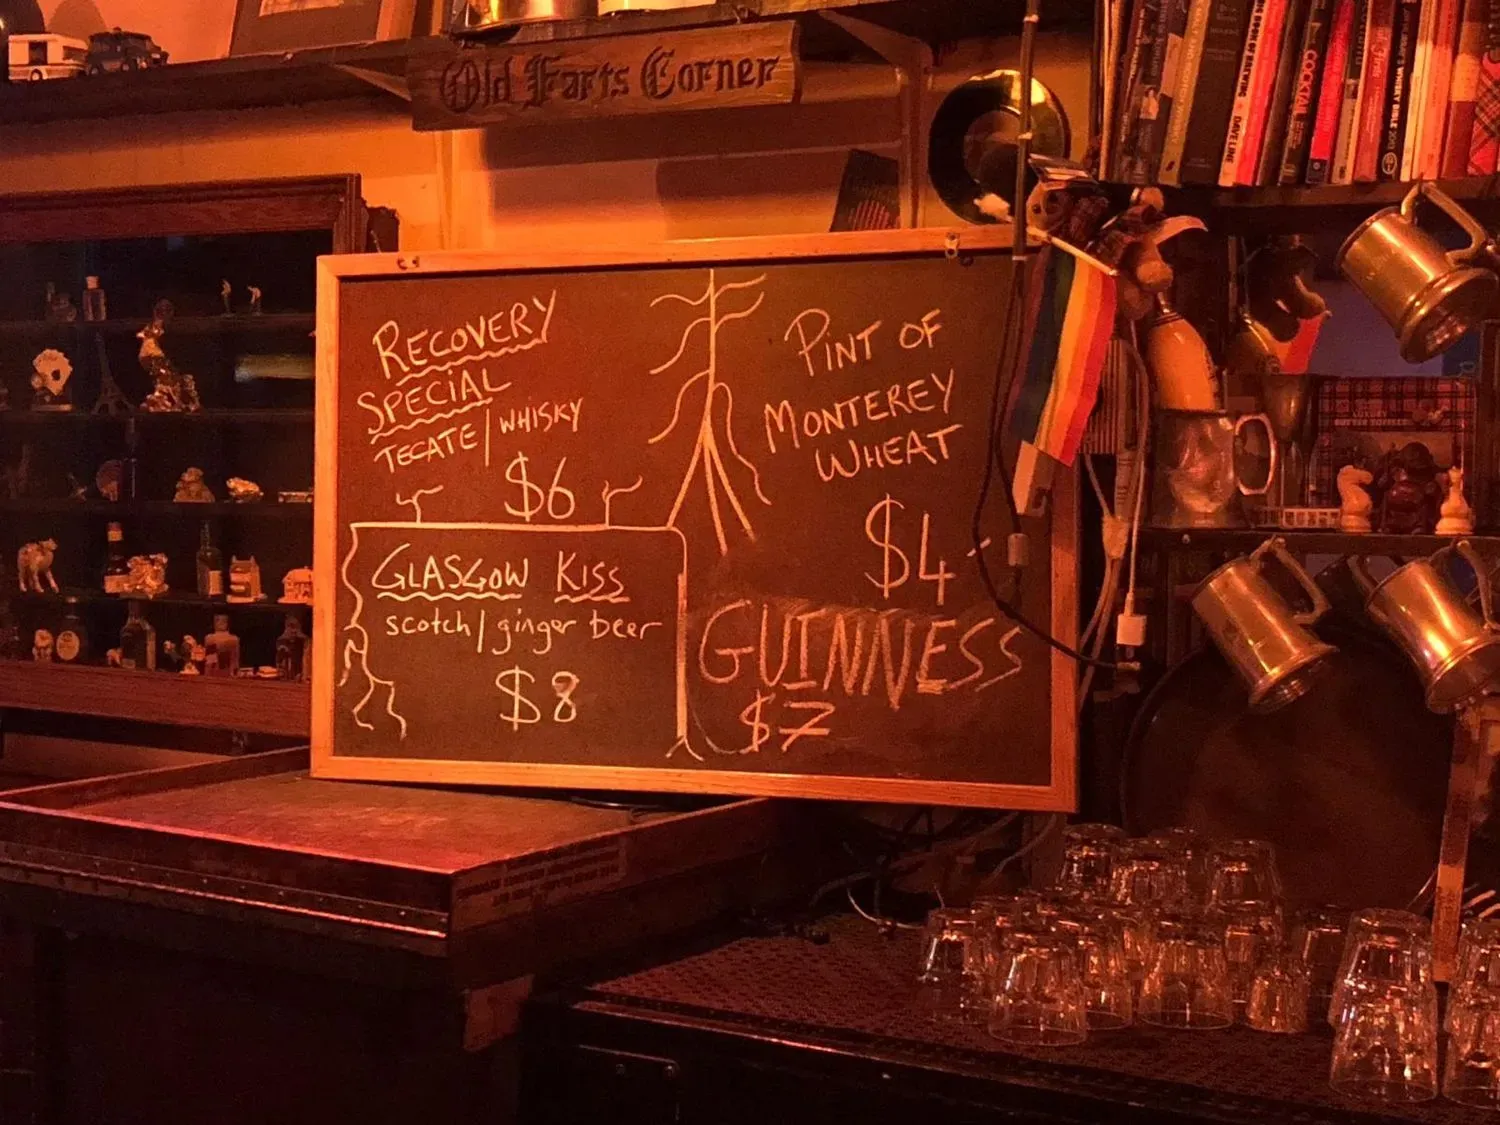 Old Farts Corner
RECOVERY
SPECIAL
TECATE/WHISKY
$6
GLASGOW KISS
scotch/ginger beer
$8
PINT OF
MONTEREY
WHEAT
$4-
GUINNESS
$7
DAVE LINE
COCKTAIL
WHISKY BIBLE 2013